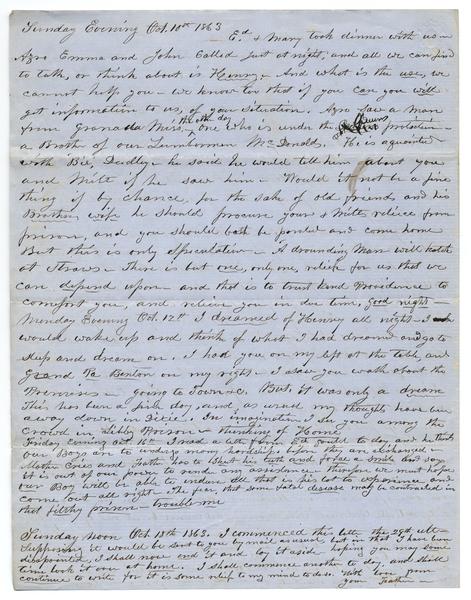 Sunday Evening Oct. 10th 1863
Ed. & Mary took dinner with us -
Azro Emma and John Called just at night, and all we can find
to talk, or think about is Henry - And what is the use, we
cannot help you - we know too that if you can you will
get information to us, of your situation. Azro saw a man
from Granada Miss, the other day one who is under the protection -
a Broth of our Lumbermen Mc Donald. He is aquainted
with Bill Dudley - he said he would tell him about you
and Milt if he saw him - Would it not be a fine
thing if by chance, for the sake of old friends and his
Brothers wife he should procure your & Milts release from
prison, and you should both be paroled and come home
But this is only Speculation - A drounding Man will katch
at Straws - There is but one, only one, relief for us that we
can depend upon - and that is to trust kind Providence to
comfort you, and relieve you in due time, good night -
Monday Evening Oct. 12th I dreamed of Henry all night - I
would wake up and think of what I had dreamed and go to
sleep and dream on. I had you on my left at the table, and
Grand Pa Benton on my right - I saw you walk about the
Premises - Going to Town &c. But, it was only a dream
This has been a fine day, and, as usual my thoughts have been
away down in Dixie - In imagination I see you among the
Crowd in Libby Prison - thinking of Home.
Friday evening Oct. 16th I had a letter from Ed Gould to day, and he thinks
our Boys are to undergo many hardships before they are exchanged.
Mother Cries and Father has to Shut his teeth and force a smile and say
it is out of our power to send any assistance - therefore we must hope
our Boy will be able to endure all that is his lot to experience and
come out all right - The fear, that some fatal disease may be contracted in
that filthy prison - troubles me
Sunday Noon Oct. 18th 1863. I commenced this letter the 29th ult -
Supposing it would be sent to you by mail as usual but in that I have been
disapointed, I shall now end it and lay it aside hoping you may some
time look it over at home. I shall commence another to day, and shall
continue to write for it is some relief to my mind to do so. With love from
your Father -